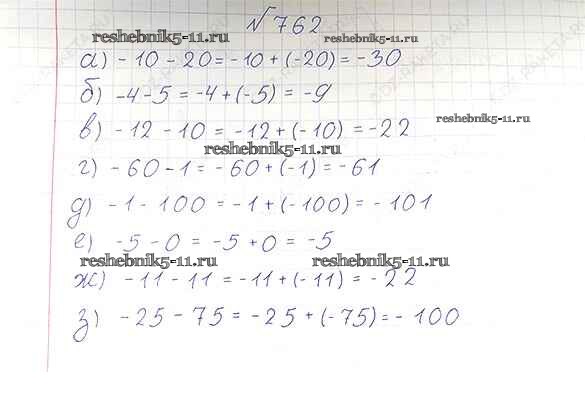 №762
reshebnik5-11.ru reshebnik5-11.ru
а) -10 - 20 = -10 + (-20) = -30
б) -4 - 5 = -4 + (-5) = -9
reshebnik5-11.ru
в) -12 - 10 = -12 + (-10) = -22
reshebnik5-11.ru
г) -60 - 1 = -60 + (-1) = -61
д) -1 - 100 = -1 + (-100) = -101
е) -5 - 0 = -5 + 0 = -5
reshebnik5-11.ru reshebnik5-11.ru
ж) -11 - 11 = -11 + (-11) = -22
з) -25 - 75 = -25 + (-75) = -100